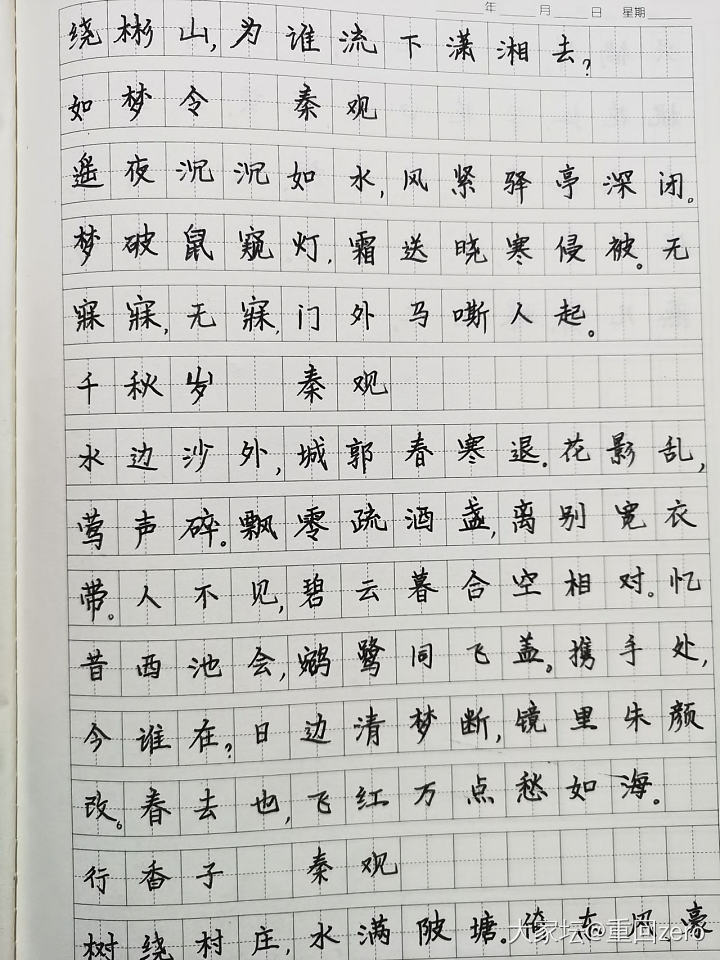 年 月 日 星期
绕郴山,为谁流下潇湘去?
如梦令 秦观
遥夜沉沉如水,风紧驿亭深闭。
梦破鼠窥灯,霜送晓寒侵被。无
寐寐,无寐,门外马嘶人起。
千秋岁 秦观
水边沙外,城郭春寒退。花影乱,
莺声碎。飘零疏酒盏,离别宽衣
带。人不见,碧云暮合空相对。忆
昔西池会,鹓鹭同飞盖。携手处,
今谁在?日边清梦断,镜里朱颜
改。春去也,飞红万点愁如海。
行香子 秦观
树绕村庄,水满陂塘。倚东风,豪
大家坛@重回zero